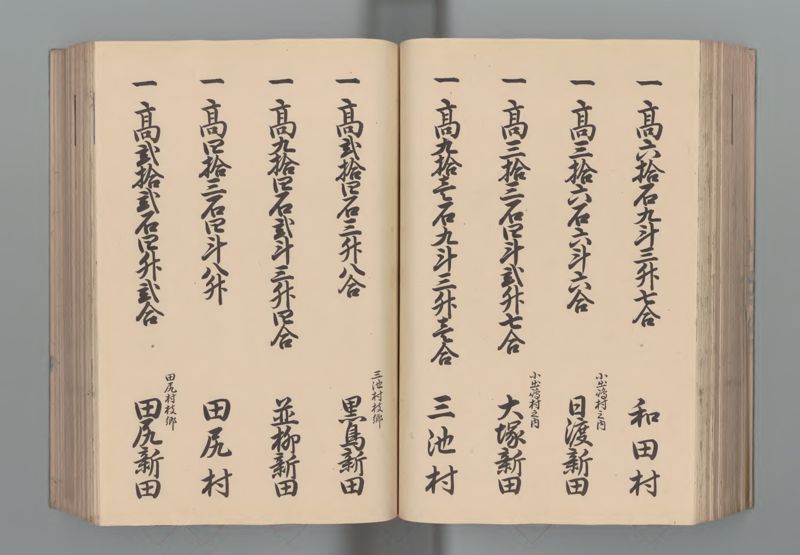 一高六拾石九斗三升七合 和田村
一高三拾六石六斗六合 小出嶋村之内 日渡新田
一高三拾三石四斗弐升七合 小出嶋村之内 大塚新田
一高九拾壱石九斗三升壱合 三池村
一高弐拾四石三升八合 三池村枝郷 黒鳥新田
一高九拾四石弐斗三升四合 並柳新田
一高四拾三石四斗八升 田尻村
一高弐拾弐石四升弐合 田尻村枝郷 田尻新田